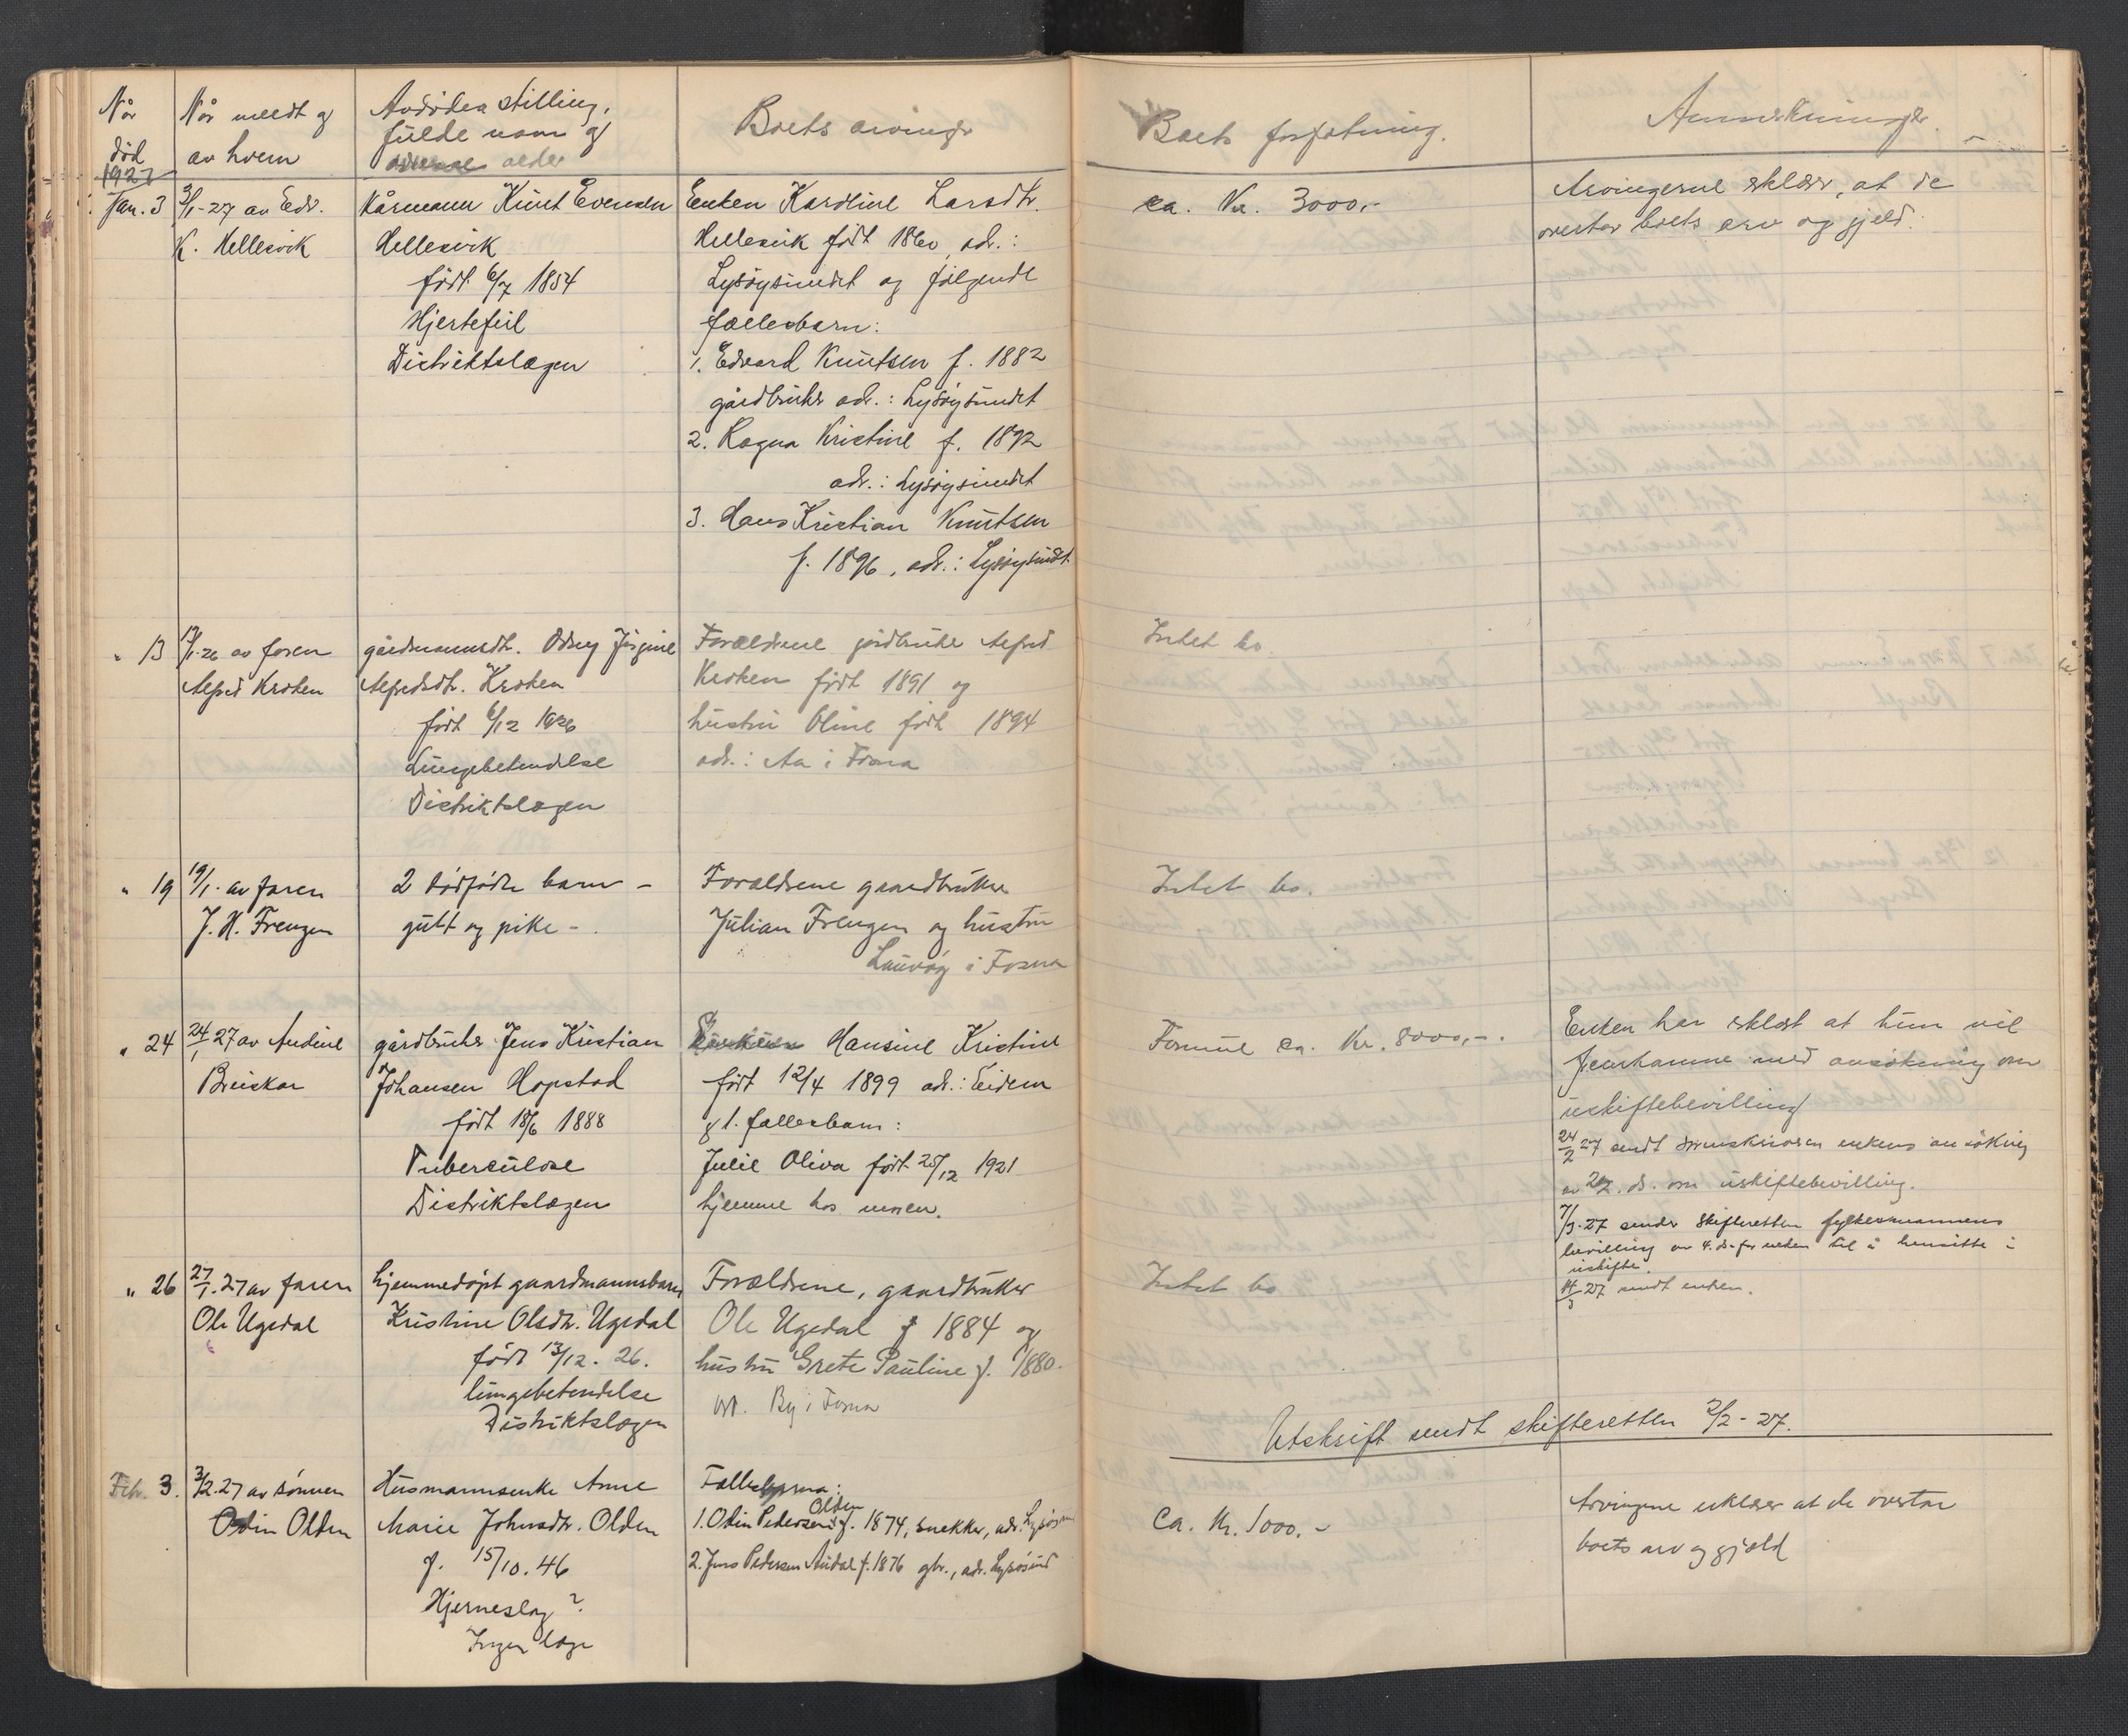 Når
død
1927
Når meldt og
av hvem
Avdødes stilling,
fulde navn og
alder
Boets arvinger
Boets forfatning.
Anmerkninger.
Jan. 3
3/1-27 av Edv.
K. Hellesvik
Kårmann Knut Evensen
Hellesvik
født 6/7 1854
Hjertefeil
Distriktslægen
Enken Karoline Larsdtr.
Hellesvik født 1860, adr.:
Lysøysundet og følgende
fællesbarn:
1. Edvard Knutsen f. 1882
gårdbruker adr.: Lysøysundet
2. Ragna Kristine f. 1892
adr.: Lysøysundet
3. Hans Kristian Knutsen
f. 1896, adr.: Lysøysundt.
ca. Kr. 3000,-
Arvingerne erklærer, at de
overtar boets arv og gjeld.
" 13
/1-26 av faren
Alfred Kroken
gårdmannsdtr. Oddny Jørgine
Alfredsdtr. Kroken
født 6/12 1926
Lungebetendelse
Distriktslægen
Forældrene jordbruker Alfred
Kroken født 1891 og
hustru Oline født 1894
adr.: Aa i Fosna
Intet bo.
" 19
19/1. av faren
J. H. Frengen
2 dødfødte barn -
gutt og pike -.
Forældrene gaardbruker
Julian Frengen og hustru
Lauvøy i Fosna
Intet bo.
" 24
24/1 27 av Andine
Breiskar
gårdbruker Jens Kristian
Johansen Hopstad
født 18/6 1888
Tuberculose
Distriktslægen
Enken Hansine Kristine
født 12/4 1899 adr.: Eidem
og 1. fællesbarn:
Julie Oliva født 25/12 1921
hjemme hos moren.
Formue ca. Kr. 8000,-.
Enken har erklært at hun vil
fremkomme med ansøkning om
uskiftebevilling
24/2 27 sendt sorenskriveren enkens ansøkning
av 22. ds. om uskiftebevilling.
7/3-27 sender skifteretten fylkesmannens
bevilling av 4. ds. for enken til å hensitte i
uskifte.
27 sendt enken.
" 26
27/1.27 av faren
Ole Ugedal
hjemmedøpt gaardmannsbarn
Kristine Olsdtr. Ugedal
født 13/12. 26.
lungebetendelse
Distriktslægen
Forældrene, gaardbruker
Ole Ugedal f 1884 og
hustru Grete Pauline f. 1880.
adr. By i Fosna
Intet bo
Utskrift sendt skifteretten 2/2-27.
Feb. 3.
3/2.27 av sønnen
Odin Olden
Husmannsenke Anne
Marie Johnsdtr. Olden
f. 15/10. 46
Hjerneslag ?
Ingen læge
Fællesbarna:
1. Odin Pedersen Olden f. 1874, snekker, adr. Lysøysund
2. Jens Pedersen Audal f. 1876 gbr., adr. Lysøsund
Ca. Kr. 1000.-
Arvingene erklærer at de overtar
boets arv og gjæld